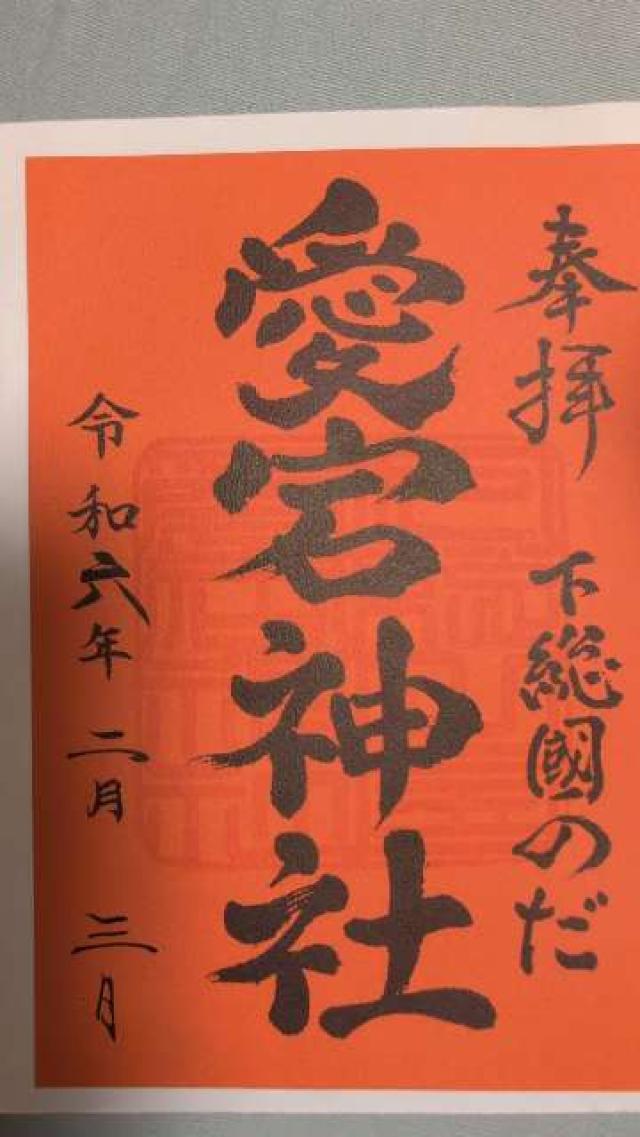 奉拝 下総國のだ
愛宕神社
令和六年 二月 三月